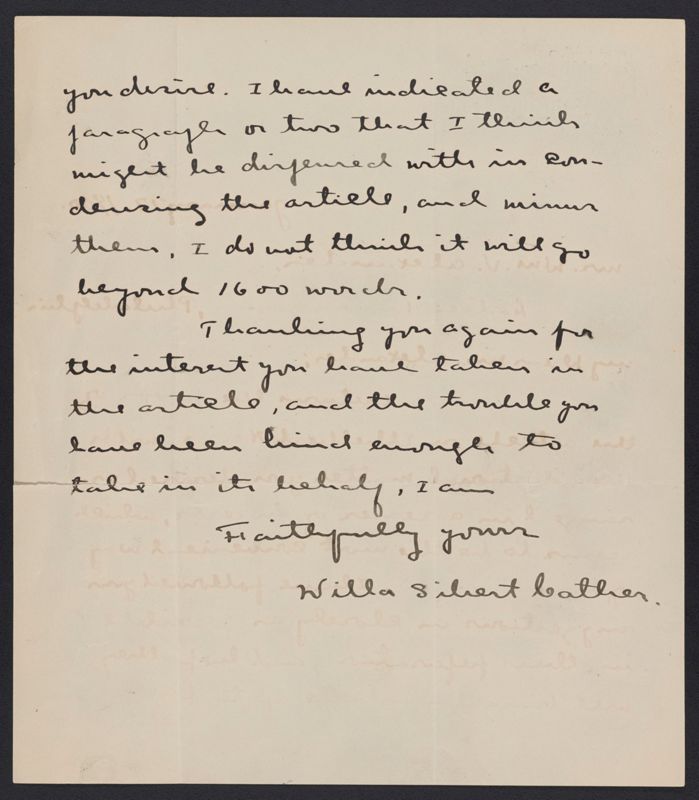 you desire. I have indicated a
paragraph or two that I think
might be dispensed with in con-
densing the article, and minus
them, I do not think it will go
beyond 1600 words.
Thanking you again for
the interest you have taken in
the article, and the trouble you
have been kind enough to
take in its behalf, I am
Faithfully yours
Willa Sibert Cather.